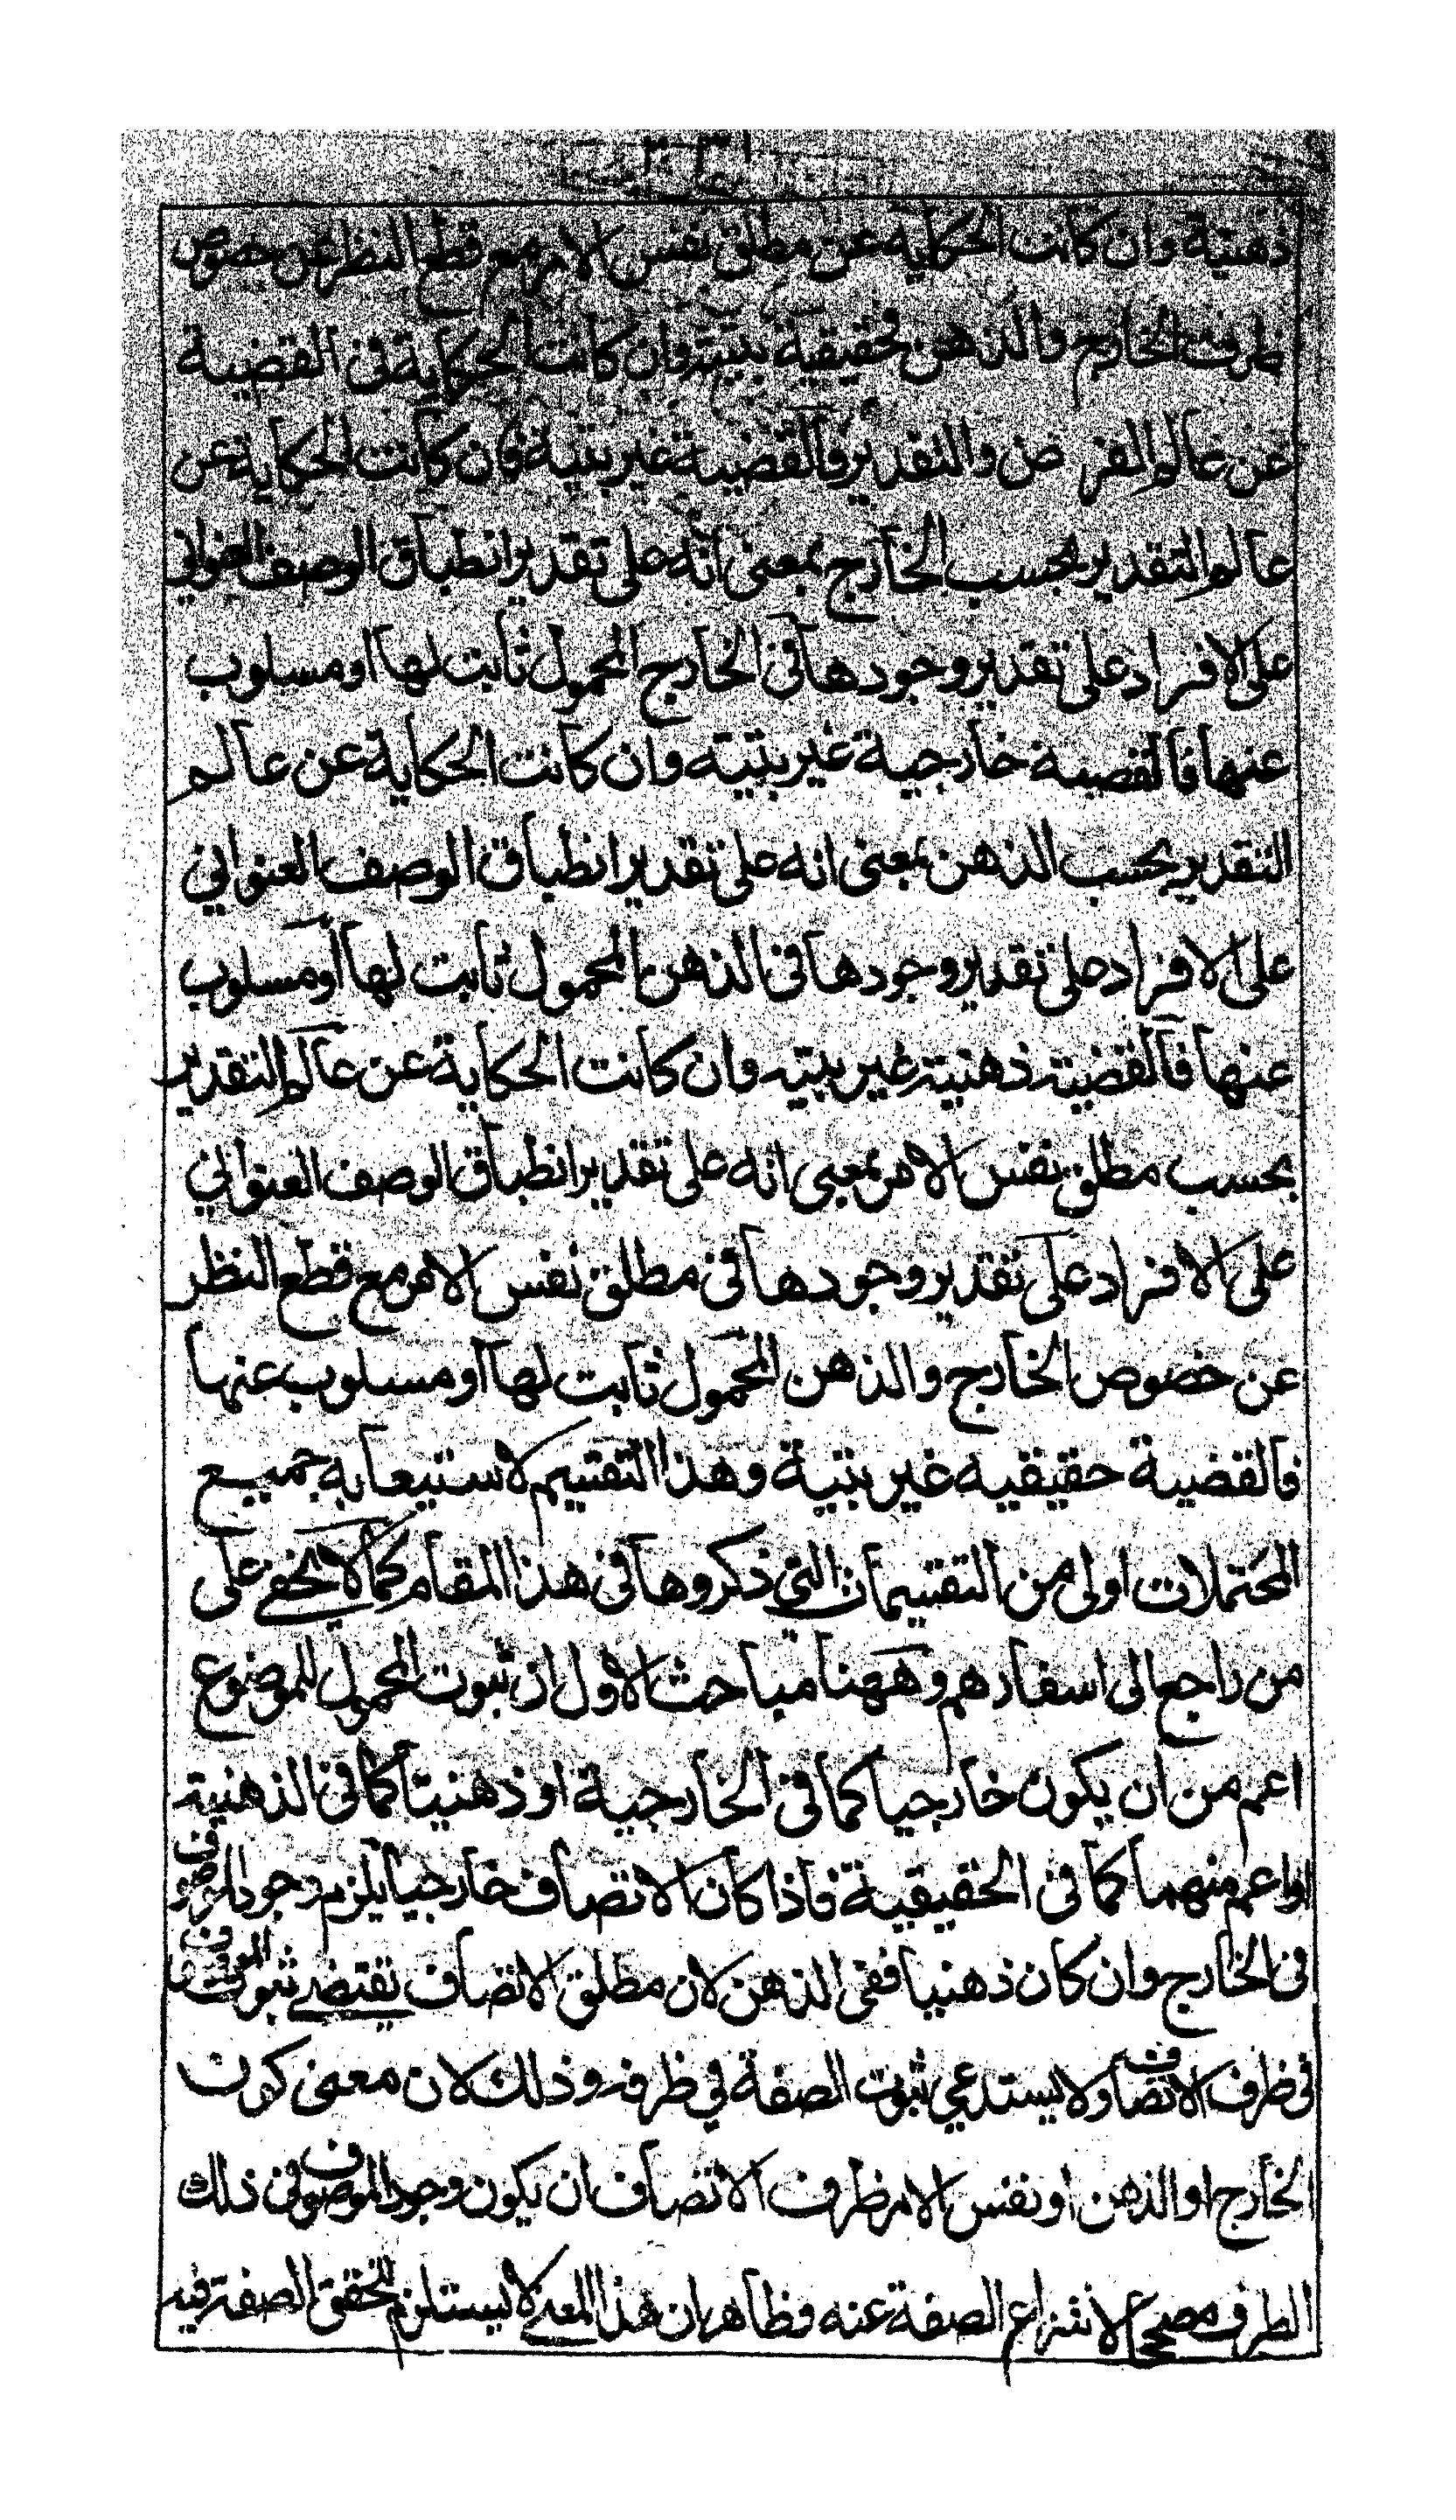 ذهنية وان كانت الحكاية عن مطلق نفس الامر مع قطع النظر عن خصوص
ظرف الخارج والذهن فحقيقية بتية وان كانت الحكاية في القضية
عن عالم الفرض والتقدير فالقضية غير بتية فان كانت الحكاية عن
عالم التقدير بحسب الخارج بمعنى انه على تقدير انطباق الوصف العنواني
على الافراد على تقدير وجودها في الخارج المحمول ثابت لها او مسلوب
عنها فالقضية خارجية غير بتية وان كانت الحكاية عن عالم
التقدير بحسب الذهن بمعنى انه على تقدير انطباق الوصف العنواني
على الافراد على تقدير وجودها في الذهن المحمول ثابت لها او مسلوب
عنها فالقضية ذهنية غير بتية وان كانت الحكاية عن عالم التقدير
بحسب مطلق نفس الامر بمعنى انه على تقدير انطباق الوصف العنواني
على الافراد على تقدير وجودها في مطلق نفس الامر مع قطع النظر
عن خصوص الخارج والذهن المحمول ثابت لها او مسلوب عنها
فالقضية حقيقيه غير بتية وهذا التقسيم لاستيعابه جميع
المحتملات اولى من التقسيمات التي ذكروها في هذا المقام كما لا يخفى على
من راجع الى اسفارهم وههنا مباحث الاول ان ثبوت المحمول للموضوع
اعم من ان يكون خارجيا كما في الخارجية او ذهنيتا كما في الذهنية
او اعم منهما كما في الحقيقية فاذا كان الاتصاف خارجيا يلزم وجود الموصوف
في الخارج وان كان ذهنيا ففي الذهن لان مطلق الاتصاف يقتضى ثبوت الموصوف
في ظرف الاتصاف ولا يستدعي ثبوت الصفة في ظرفه وذلك لان معنى كون
الخارج او الذهن او نفس الامر ظرف الاتصاف ان يكون وجود الموصوف في ذلك
الظرف مصححا لانتزاع الصفة عنه فظاهر ان هذا المعنى لا يستلزم تحقق الصفة فيه